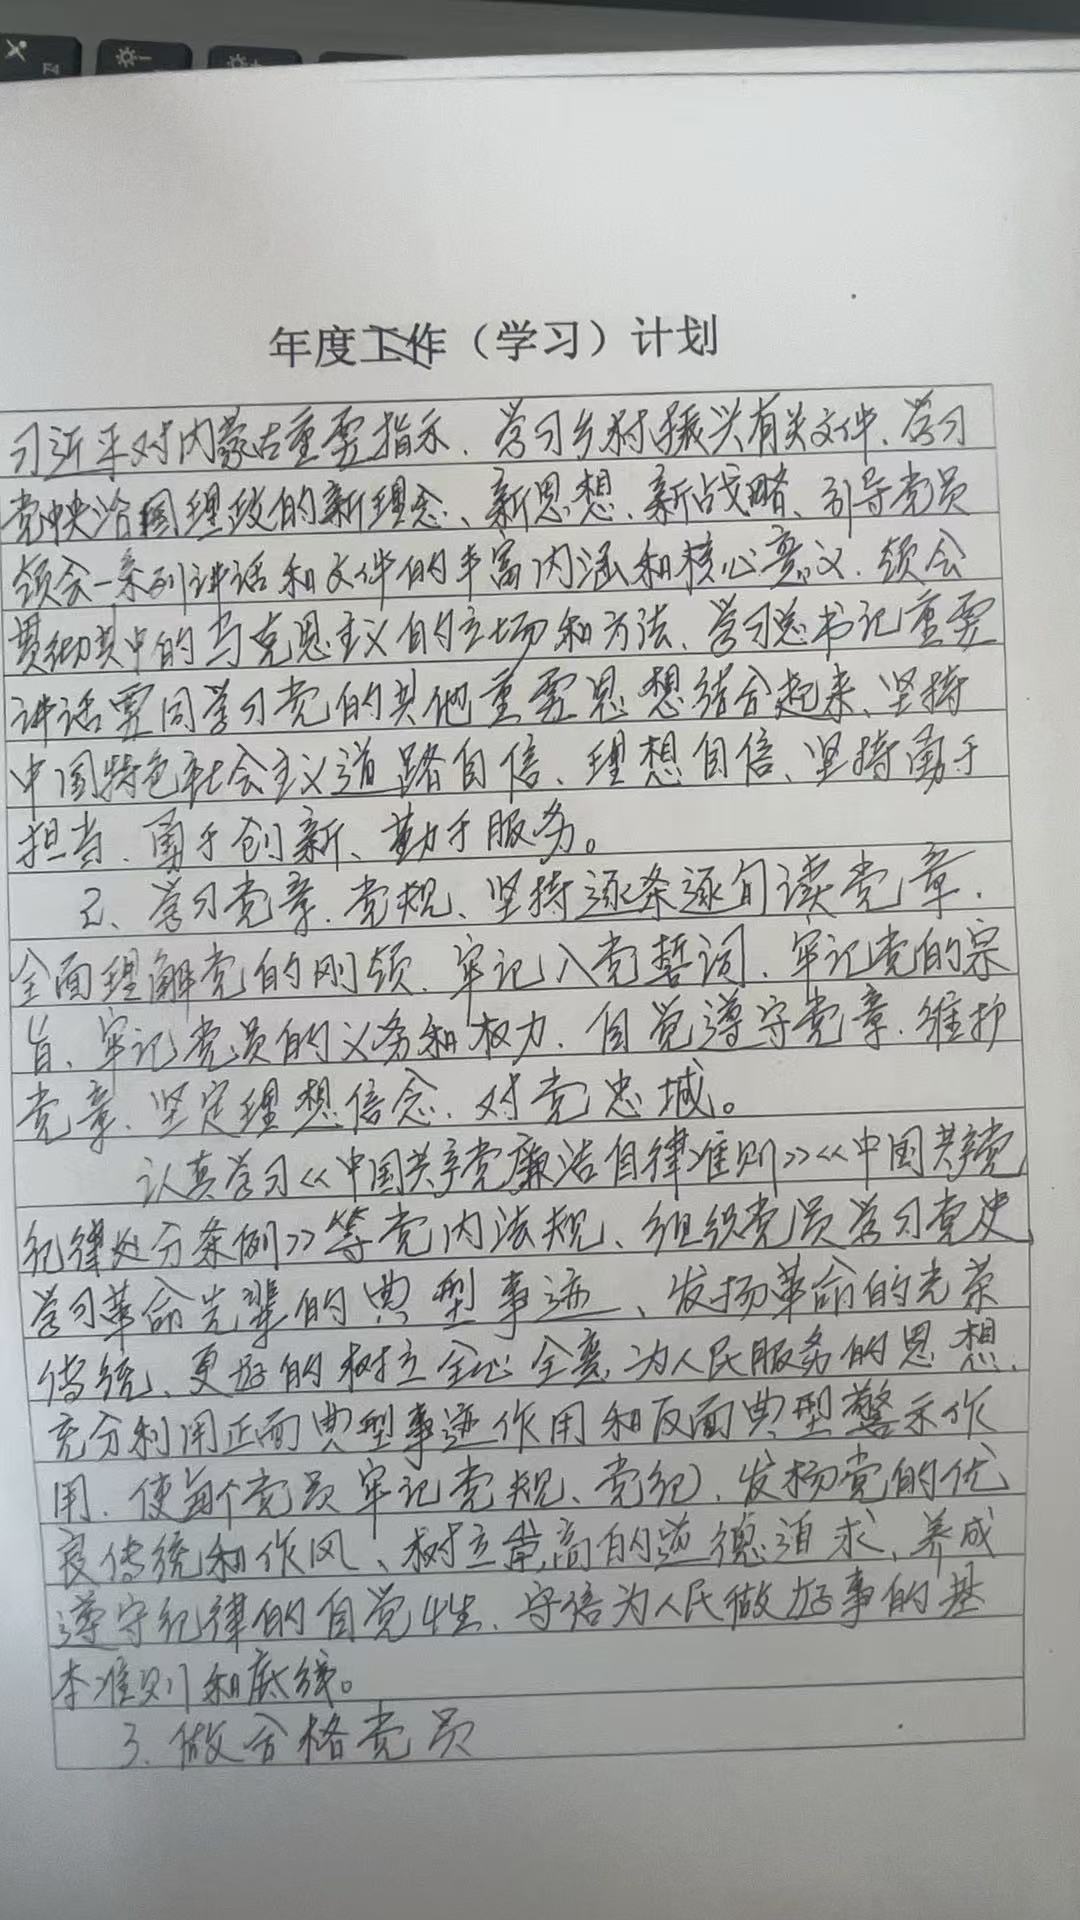 F4
年度工作（学习）计划
习近平对内蒙古重要指示、学习乡村振兴有关文件、学习
党中央治国理政的新理念、新思想、新战略、引导党员
领会一系列讲话和文件的丰富内涵和核心意义、领会
贯彻其中的马克思主义的立场和方法、学习总书记重要
讲话要同学习党的其他重要思想结合起来、坚持
中国特色社会主义道路自信、理想自信、坚持勇于
担当、勇于创新、勤于服务。
2、学习党章、党规、坚持逐条逐句读党章、
全面理解党的刚领、牢记入党誓词、牢记党的宗
旨、牢记党员的义务和权力、自觉遵守党章、维护
党章、坚定理想信念、对党忠城。
认真学习《中国共产党廉洁自律准则》《中国共产党
纪律处分条例》等党内法规、组织党员学习党史
学习革命先辈的典型事迹、发扬革命的光荣
传统、更好的树立全心全意为人民服务的思想、
充分利用正面典型事迹作用和反面典型警示作
用、使每个党员牢记党规、党纪、发扬党的优
良传统和作风、树立崇高的道德追求、养成
遵守纪律的自觉性、守信为人民做好事的基
本准则和底线。
3、做合格党员